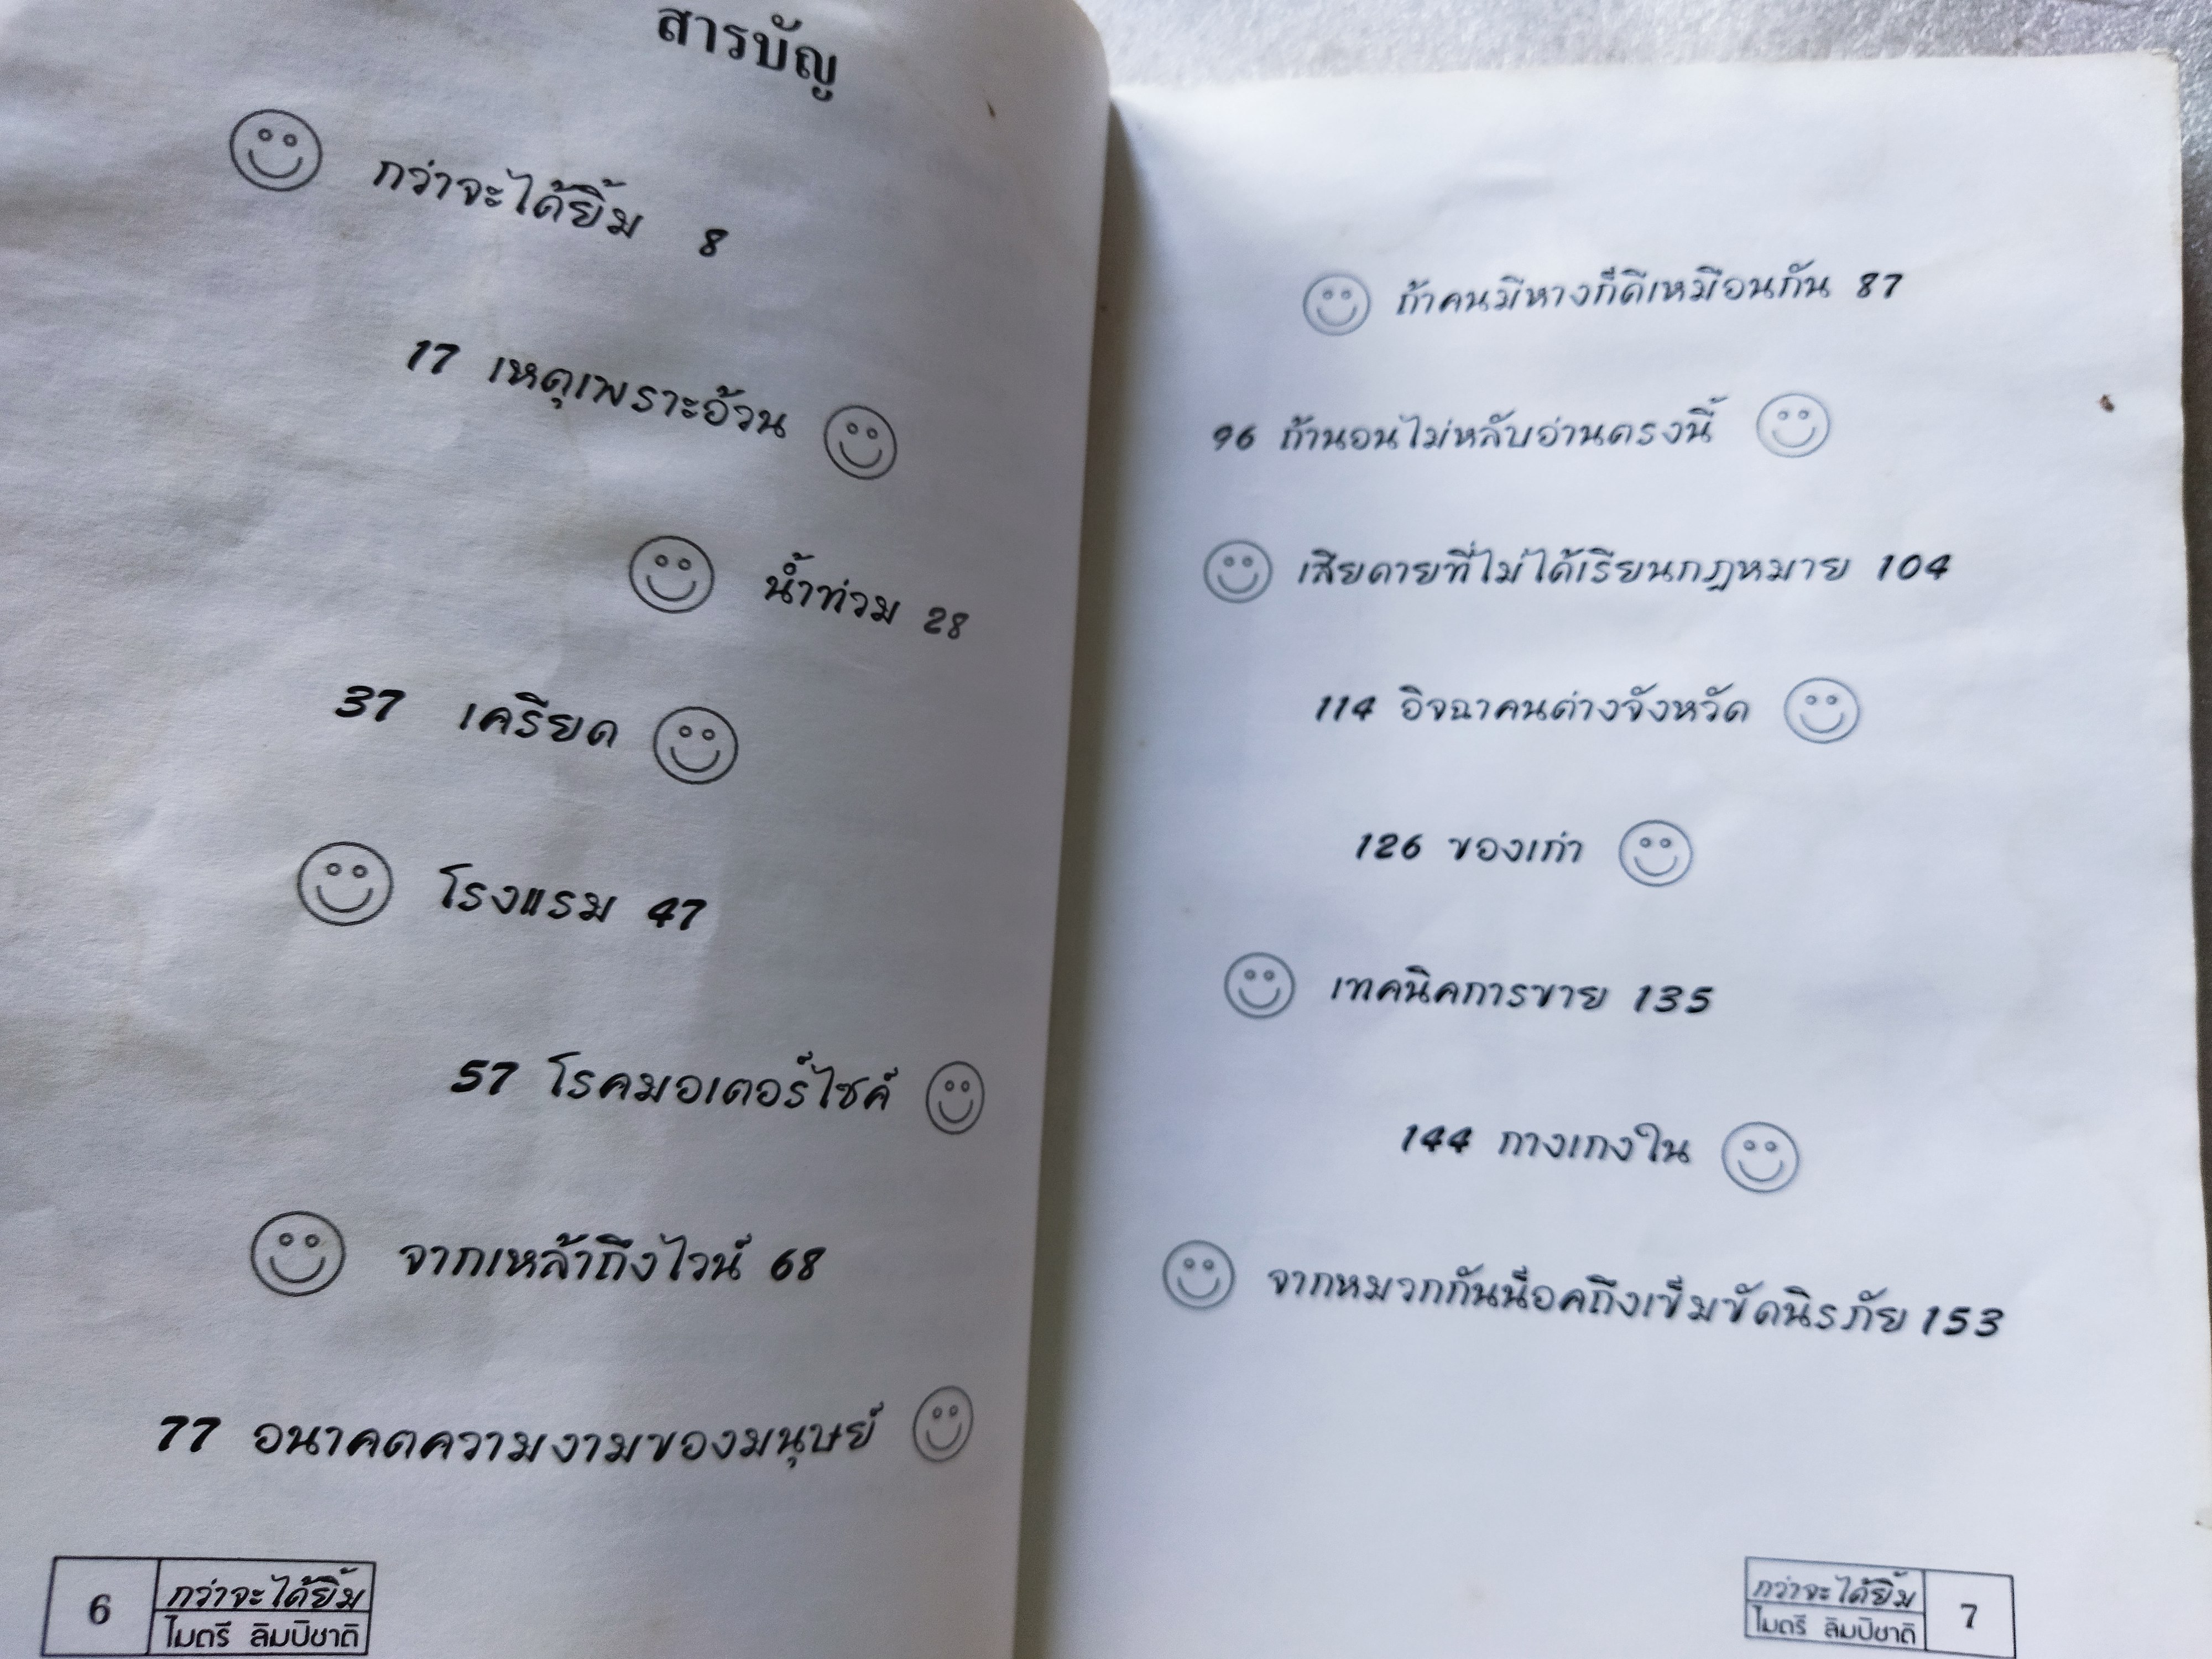 สารบัญ
กว่าจะได้ยิ้ม 8
17 เหตุเพราะอ้วน
น้ำท่วม 28
37 เครียด
โรงแรม 47
57 โรคมอเตอร์ไซค์
จากเหล้าถึงไวน์ 68
77 อนาคตความงามของมนุษย์
6 กว่าจะได้ยิ้ม
ไมตรี ลิมปิชาติ
ถ้าคนมีหางก็ดีเหมือนกัน 87
96 ถ้านอนไม่หลับอ่านตรงนี้
เสียดายที่ไม่ได้เรียนกฎหมาย 104
114 อิจฉาคนต่างจังหวัด
126 ของเก่า
เทคนิคการขาย 135
144 กางเกงใน
จากหมวกกันน็อคถึงเข็มขัดนิรภัย 153
กว่าจะได้ยิ้ม 7
ไมตรี ลิมปิชาติ